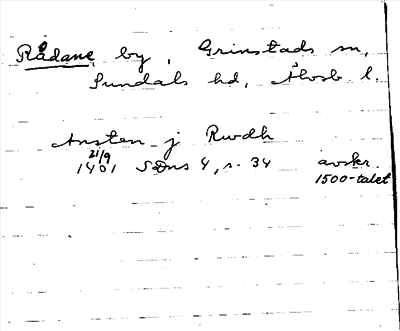 Rådane, by, Grinstads sn,
Sundals hd, Älvsb l.
Ansten j Rwdh
21/9
1401 SDns 4, s. 34 avskr.
1500-talet